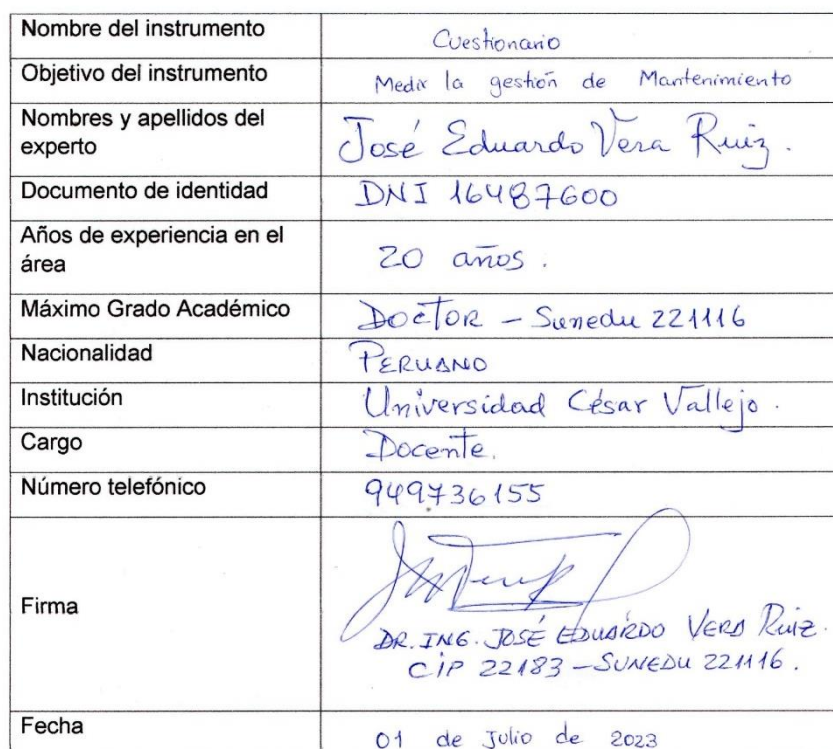 Nombre del instrumento Cuestionario
Objetivo del instrumento Medir la gestión de Mantenimiento
Nombres y apellidos del
experto
José Eduardo Vera Ruiz.
Documento de identidad DNI 16487600
Años de experiencia en el
área
20 años.
Máximo Grado Académico DOCTOR - Sunedu 221116
Nacionalidad PERUANO
Institución Universidad César Vallejo.
Cargo Docente.
Número telefónico 949736155
Firma
DR. ING. JOSÉ EDUARDO VERA Ruiz.
CIP 22183 - SUNEDU 221116.
Fecha 01 de Julio de 2023